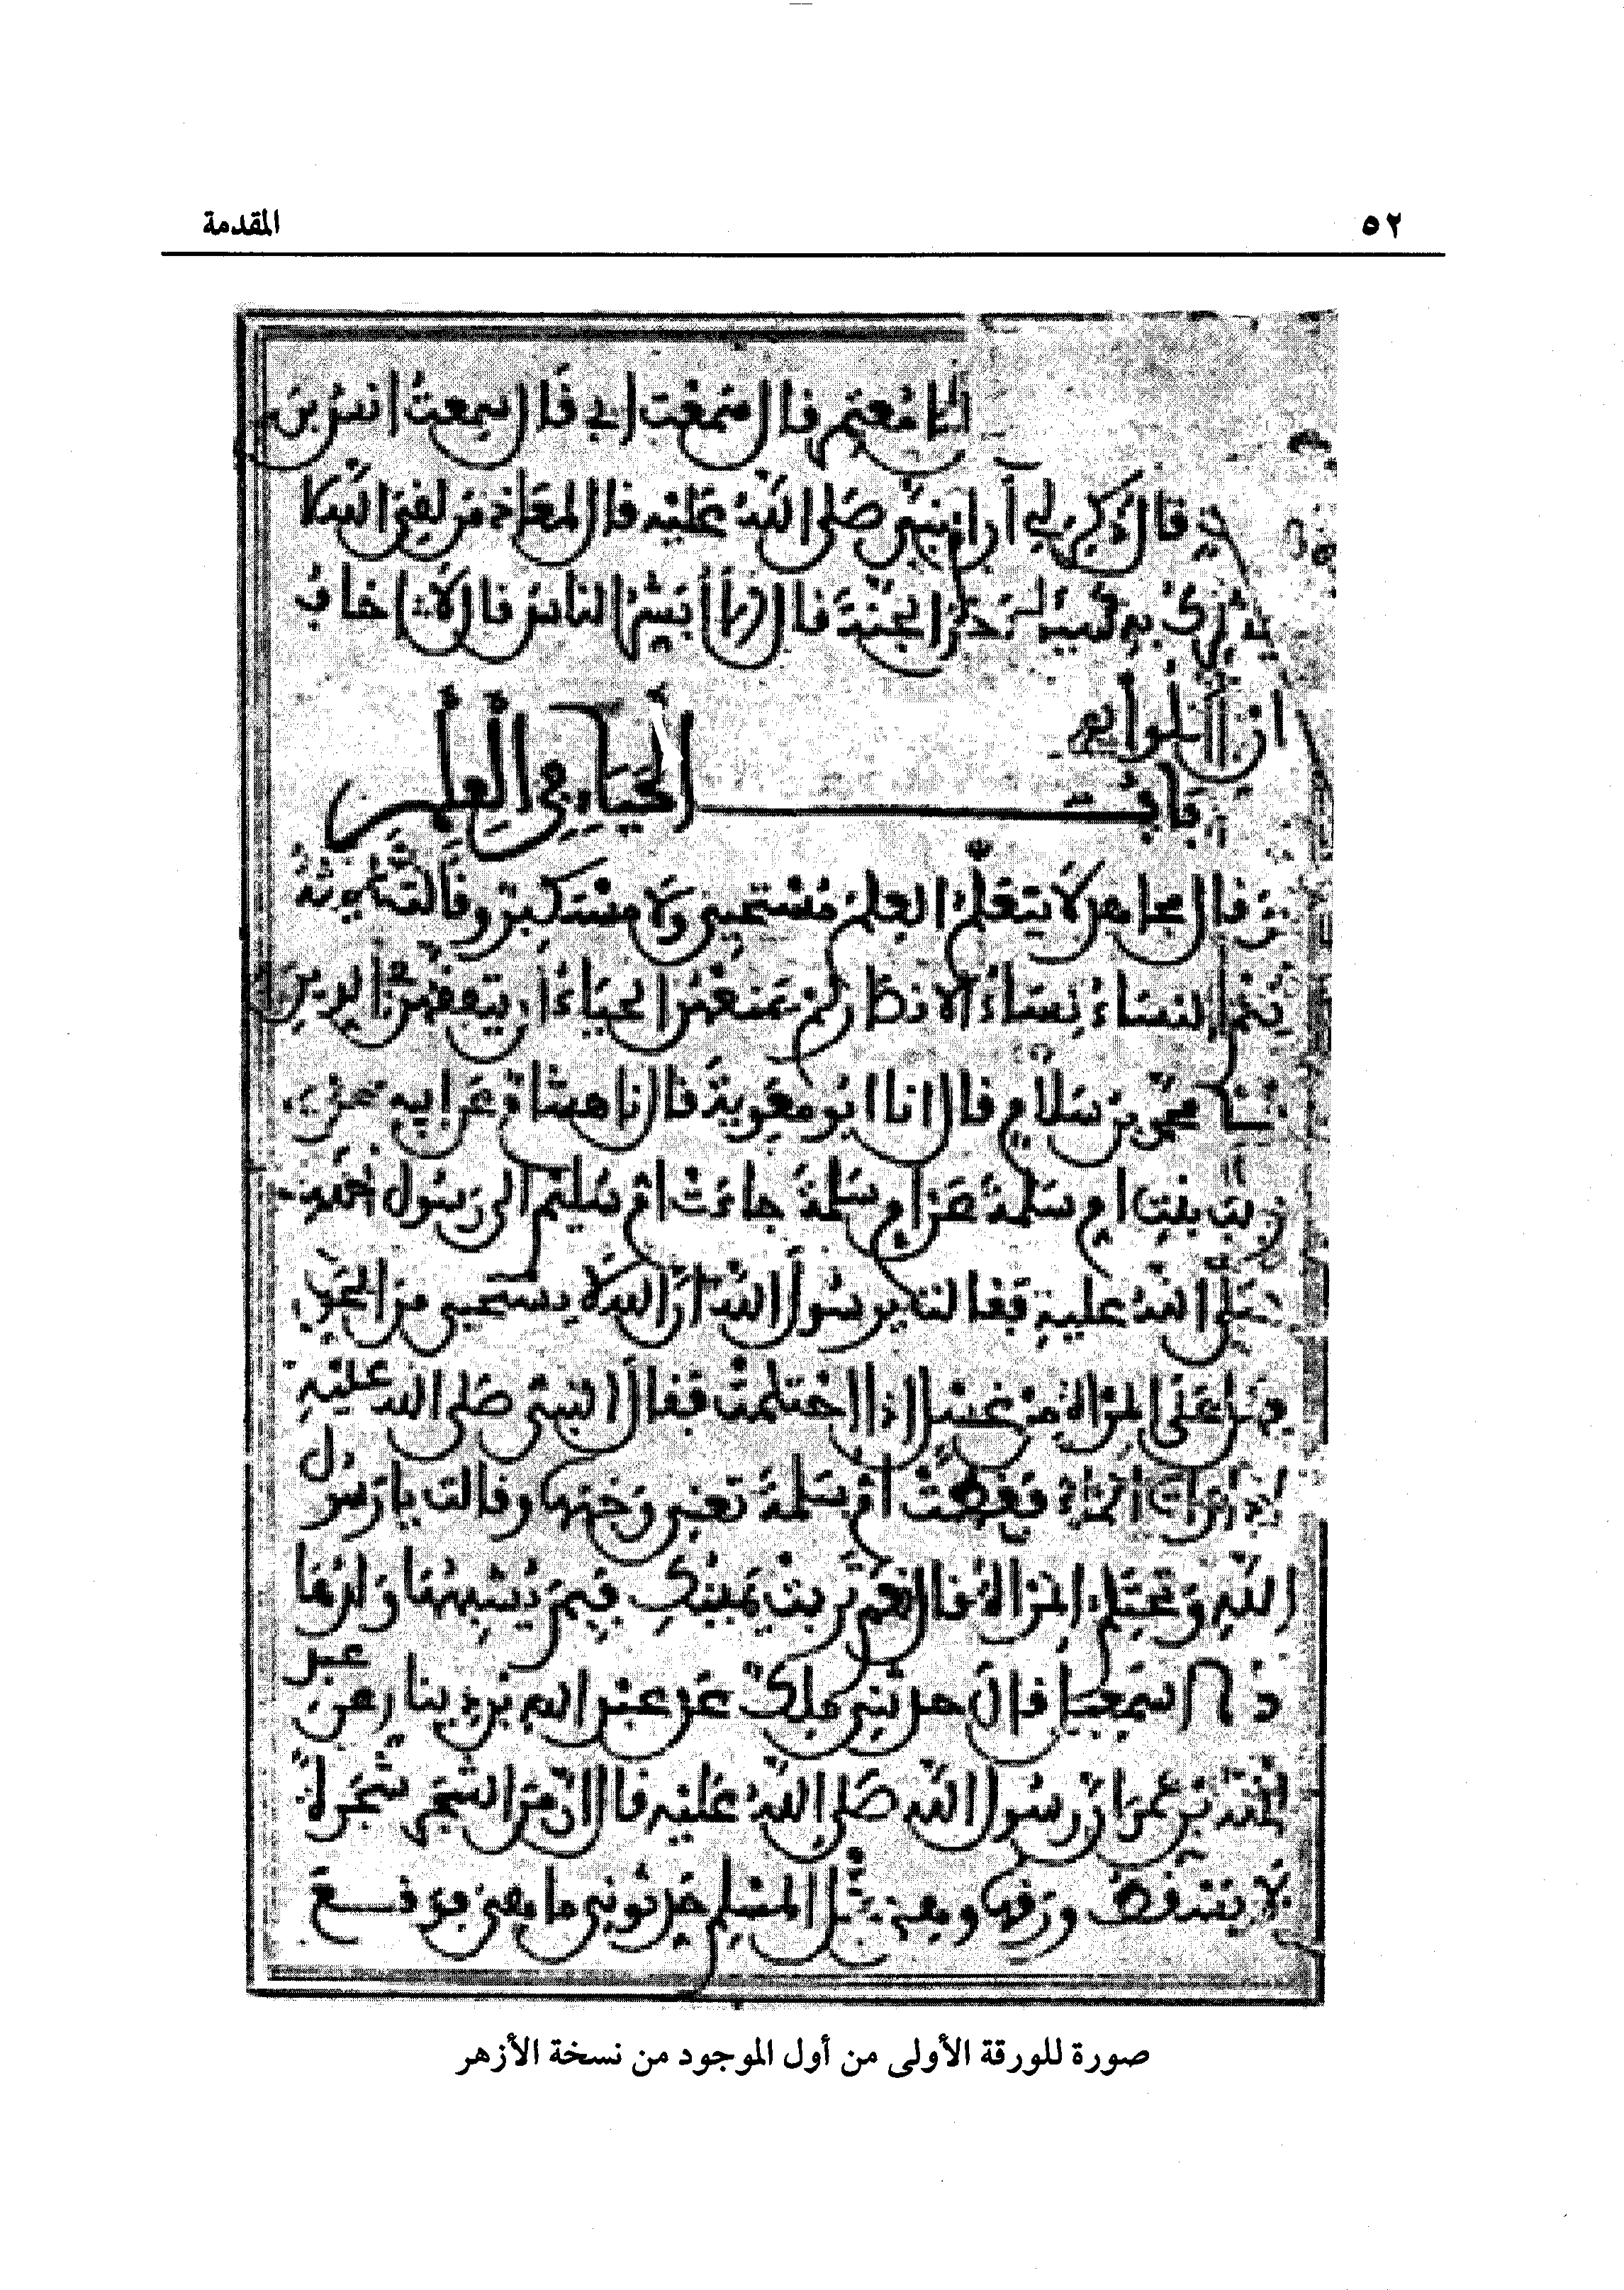 ٥٢
المقدمة
نا معتمر قال سمعت أبي قال سمعت أنس بن
قال ذكر لي أن النبي صلى الله عليه قال لمعاذ من لقي الله لا
يشرك به شيئا دخل الجنة قال ألا أبشر الناس قال لا أخاف
أن يتكلوا
باب الحياء في العلم
وقال مجاهد لا يتعلم العلم مستحيي ولا مستكبر وقالت عائشة
نعم النساء نساء الأنصار لم يمنعهن الحياء أن يتفقهن في الدين
محمد بن سلام قال انا أبو معوية قال نا هشام عن أبيه عن
زينب بنت أم سلمة عن أم سلمة جاءت أم سليم إلى رسول الله
صلى الله عليه فقالت يرسول الله إن الله لا يستحيي من الحق
فهل على المرأة من غسل إذا احتلمت فقال النبي صلى الله عليه
إذا رأت الماء فغطت أم سلمة تعني وجهها وقالت يا رسول
الله وتحتلم المرأة قال نعم تربت يمينك فبم يشبهها ولدها
نا اسمعيل قال حدثني ملك عن عبد الله بن دينار عن عبد
الله بن عمر أن رسول الله صلى الله عليه قال إن من الشجر شجرة
لا يسقط ورقها وهي مثل المسلم حدثوني ما هي فوقع
صورة للورقة الأولى من أول الموجود من نسخة الأزهر